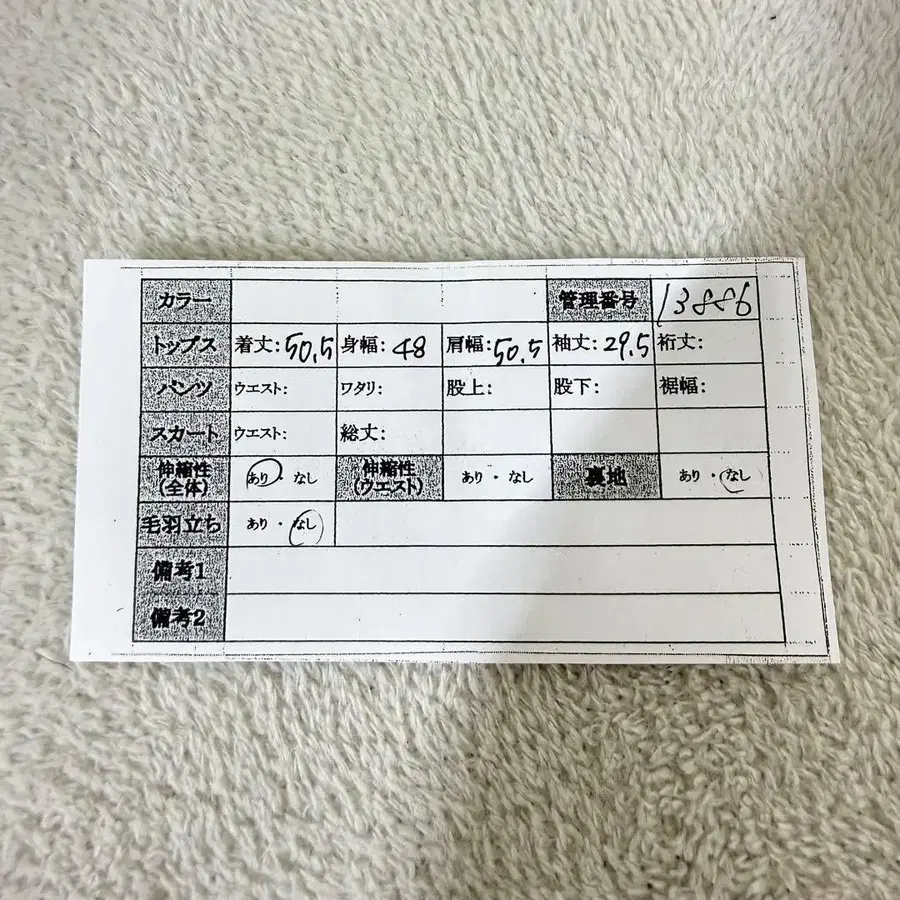 カラー 管理番号 13886
トップス 着丈:50.5 身幅:48 肩幅:50.5 袖丈:29.5 裄丈:
パンツ ウエスト: ワタリ: 股上: 股下: 裾幅:
スカート ウエスト: 総丈:
伸縮性(全体) あり・なし 伸縮性(ウエスト) あり・なし 裏地 あり・なし
毛羽立ち あり・なし
備考1
備考2